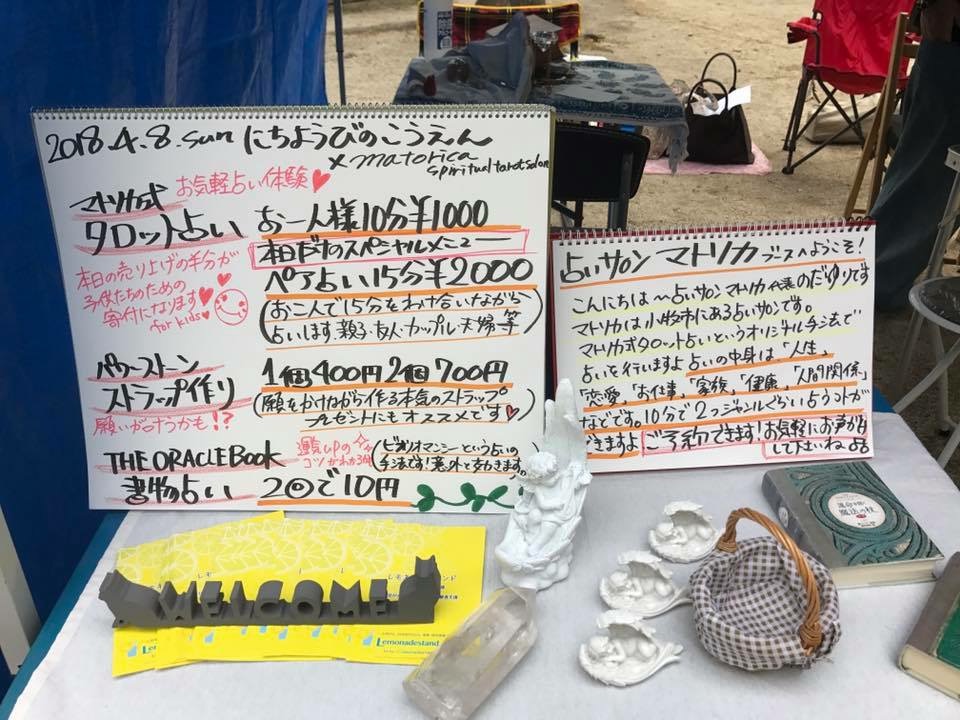 2018.4.8.sun にちようびのこうえん
× matorica
spiritual tarot salon
マトリカ式 お気軽占い体験♥
タロット占い お一人様10分¥1000
本日だけのスペシャルメニュー
本日の売り上げの半分が
子供たちのための
寄付になります♥
for kids♥
ペア占い15分¥2000
(お二人で15分をわけ合いながら
占います。親子・友人・カップル・夫婦等)
パワーストーン
ストラップ作り 1個400円2個700円
願いが叶うかも!?
(願をかけながら作る本気のストラップ
プレゼントにもオススメです♥)
THE ORACLE Book
書物占い 2回で10円
運気UPの
コツがわかる
(ビブリオマンシーという占いの
手法です!意外と驚きます。)
占いサロン マトリカ ブースへようこそ!
こんにちは〜占いサロン マトリカ代表のだゆりです
マトリカは小牧市にある占いサロンです。
マトリカ式タロット占いというオリジナル手法で
占いを行いますよ 占いの中身は「人生」
「恋愛」「お仕事」「家族」「健康」「人間関係」
などです。10分で2つジャンルぐらい占うコトが
できますよ ご予約できます!お気軽にお声がけ
して下さいね
WELCOME
Lemonadestand
魔法の杖